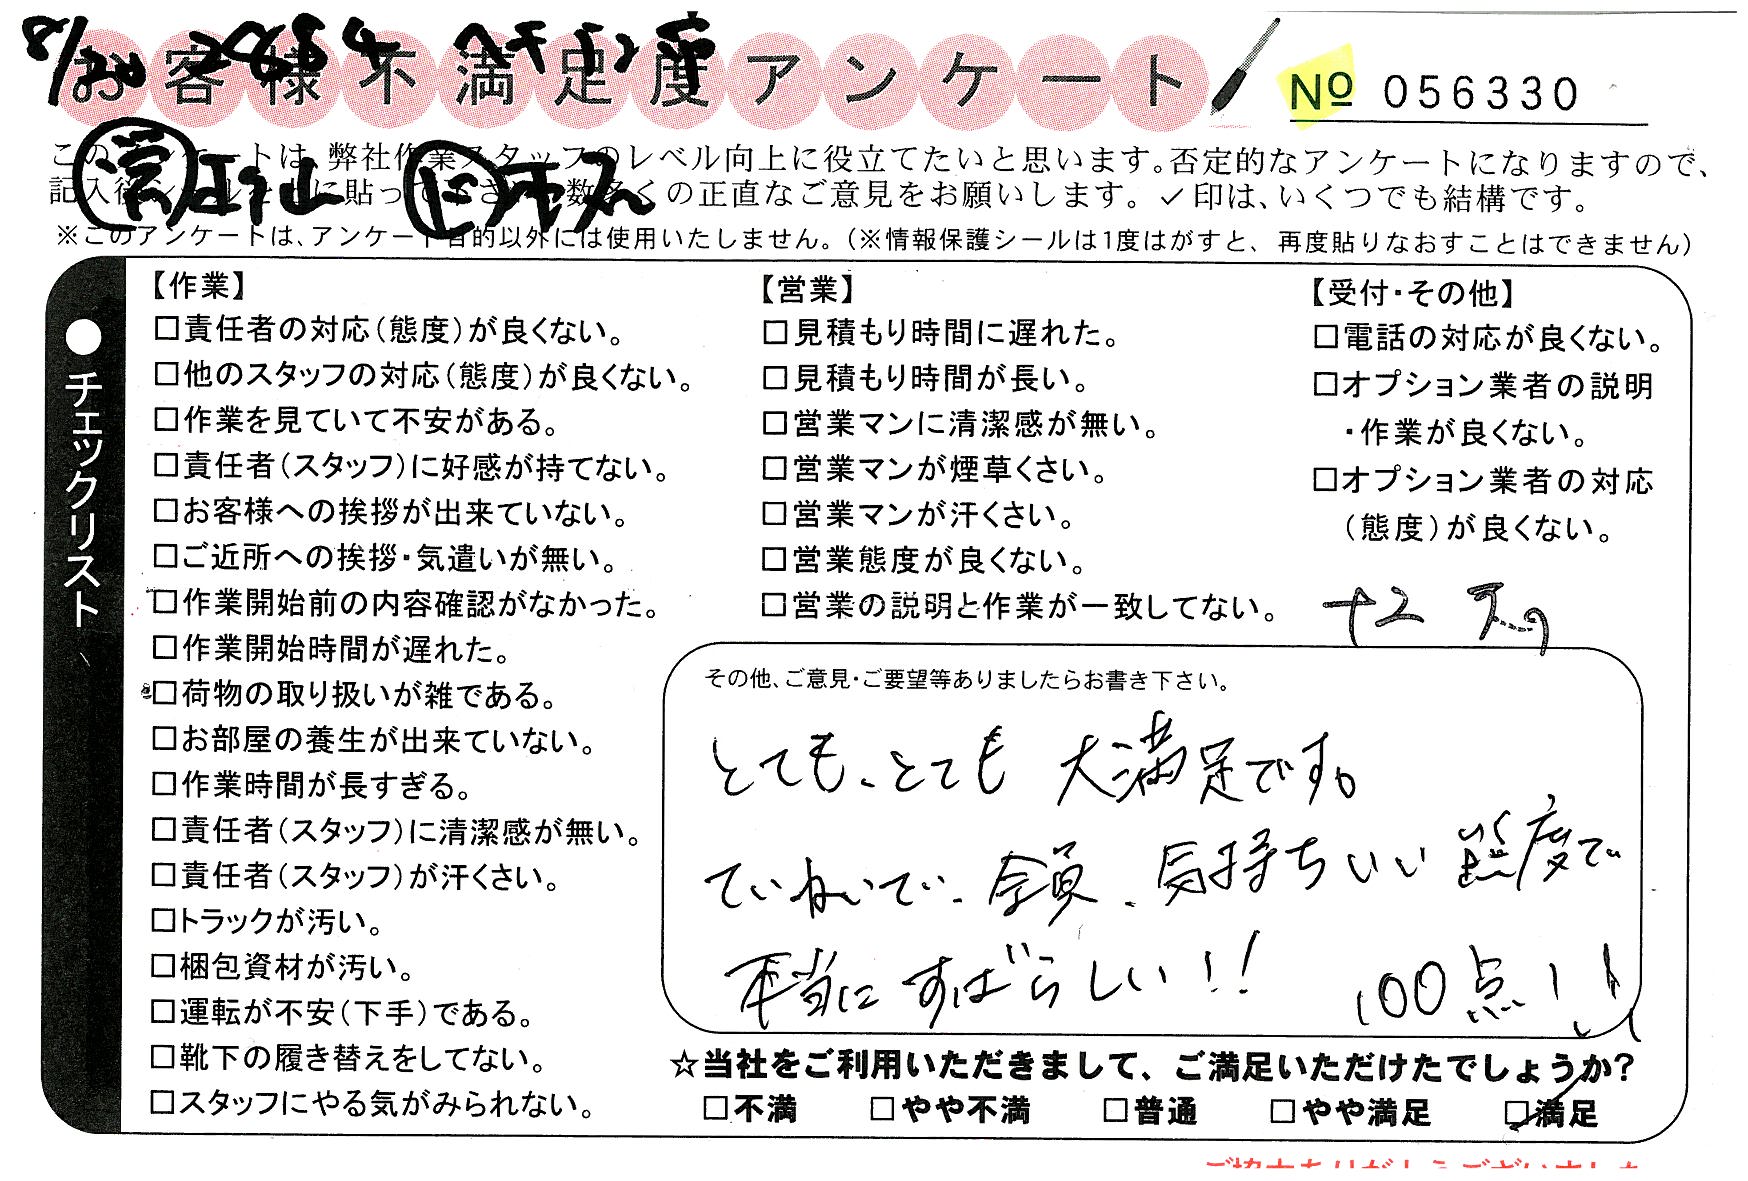 8/20 2884
お客様不満足度アンケート
№ 056330
このアンケートは、弊社作業スタッフのレベル向上に役立てたいと思います。否定的なアンケートになりますので、
記入後シールを上に貼ってください。数多くの正直なご意見をお願いします。✓印は、いくつでも結構です。
※このアンケートは、アンケート目的以外には使用いたしません。(※情報保護シールは1度はがすと、再度貼りなおすことはできません)
●チェックリスト
【作業】
□責任者の対応(態度)が良くない。
□他のスタッフの対応(態度)が良くない。
□作業を見ていて不安がある。
□責任者(スタッフ)に好感が持てない。
□お客様への挨拶が出来ていない。
□ご近所への挨拶・気遣いが無い。
□作業開始前の内容確認がなかった。
□作業開始時間が遅れた。
□荷物の取り扱いが雑である。
□お部屋の養生が出来ていない。
□作業時間が長すぎる。
□責任者(スタッフ)に清潔感が無い。
□責任者(スタッフ)が汗くさい。
□トラックが汚い。
□梱包資材が汚い。
□運転が不安(下手)である。
□靴下の履き替えをしてない。
□スタッフにやる気がみられない。
【営業】
□見積もり時間に遅れた。
□見積もり時間が長い。
□営業マンに清潔感が無い。
□営業マンが煙草くさい。
□営業マンが汗くさい。
□営業態度が良くない。
□営業の説明と作業が一致してない。
【受付・その他】
□電話の対応が良くない。
□オプション業者の説明
・作業が良くない。
□オプション業者の対応
(態度)が良くない。
その他、ご意見・ご要望等ありましたらお書き下さい。
とても、とても 大満足です。
ていねいで、全員、気持ちいい態度で
本当にすばらしい!! 100点!!
☆当社をご利用いただきまして、ご満足いただけたでしょうか?
□不満 □やや不満 □普通 □やや満足 ☑満足
ご協力ありがとうございました